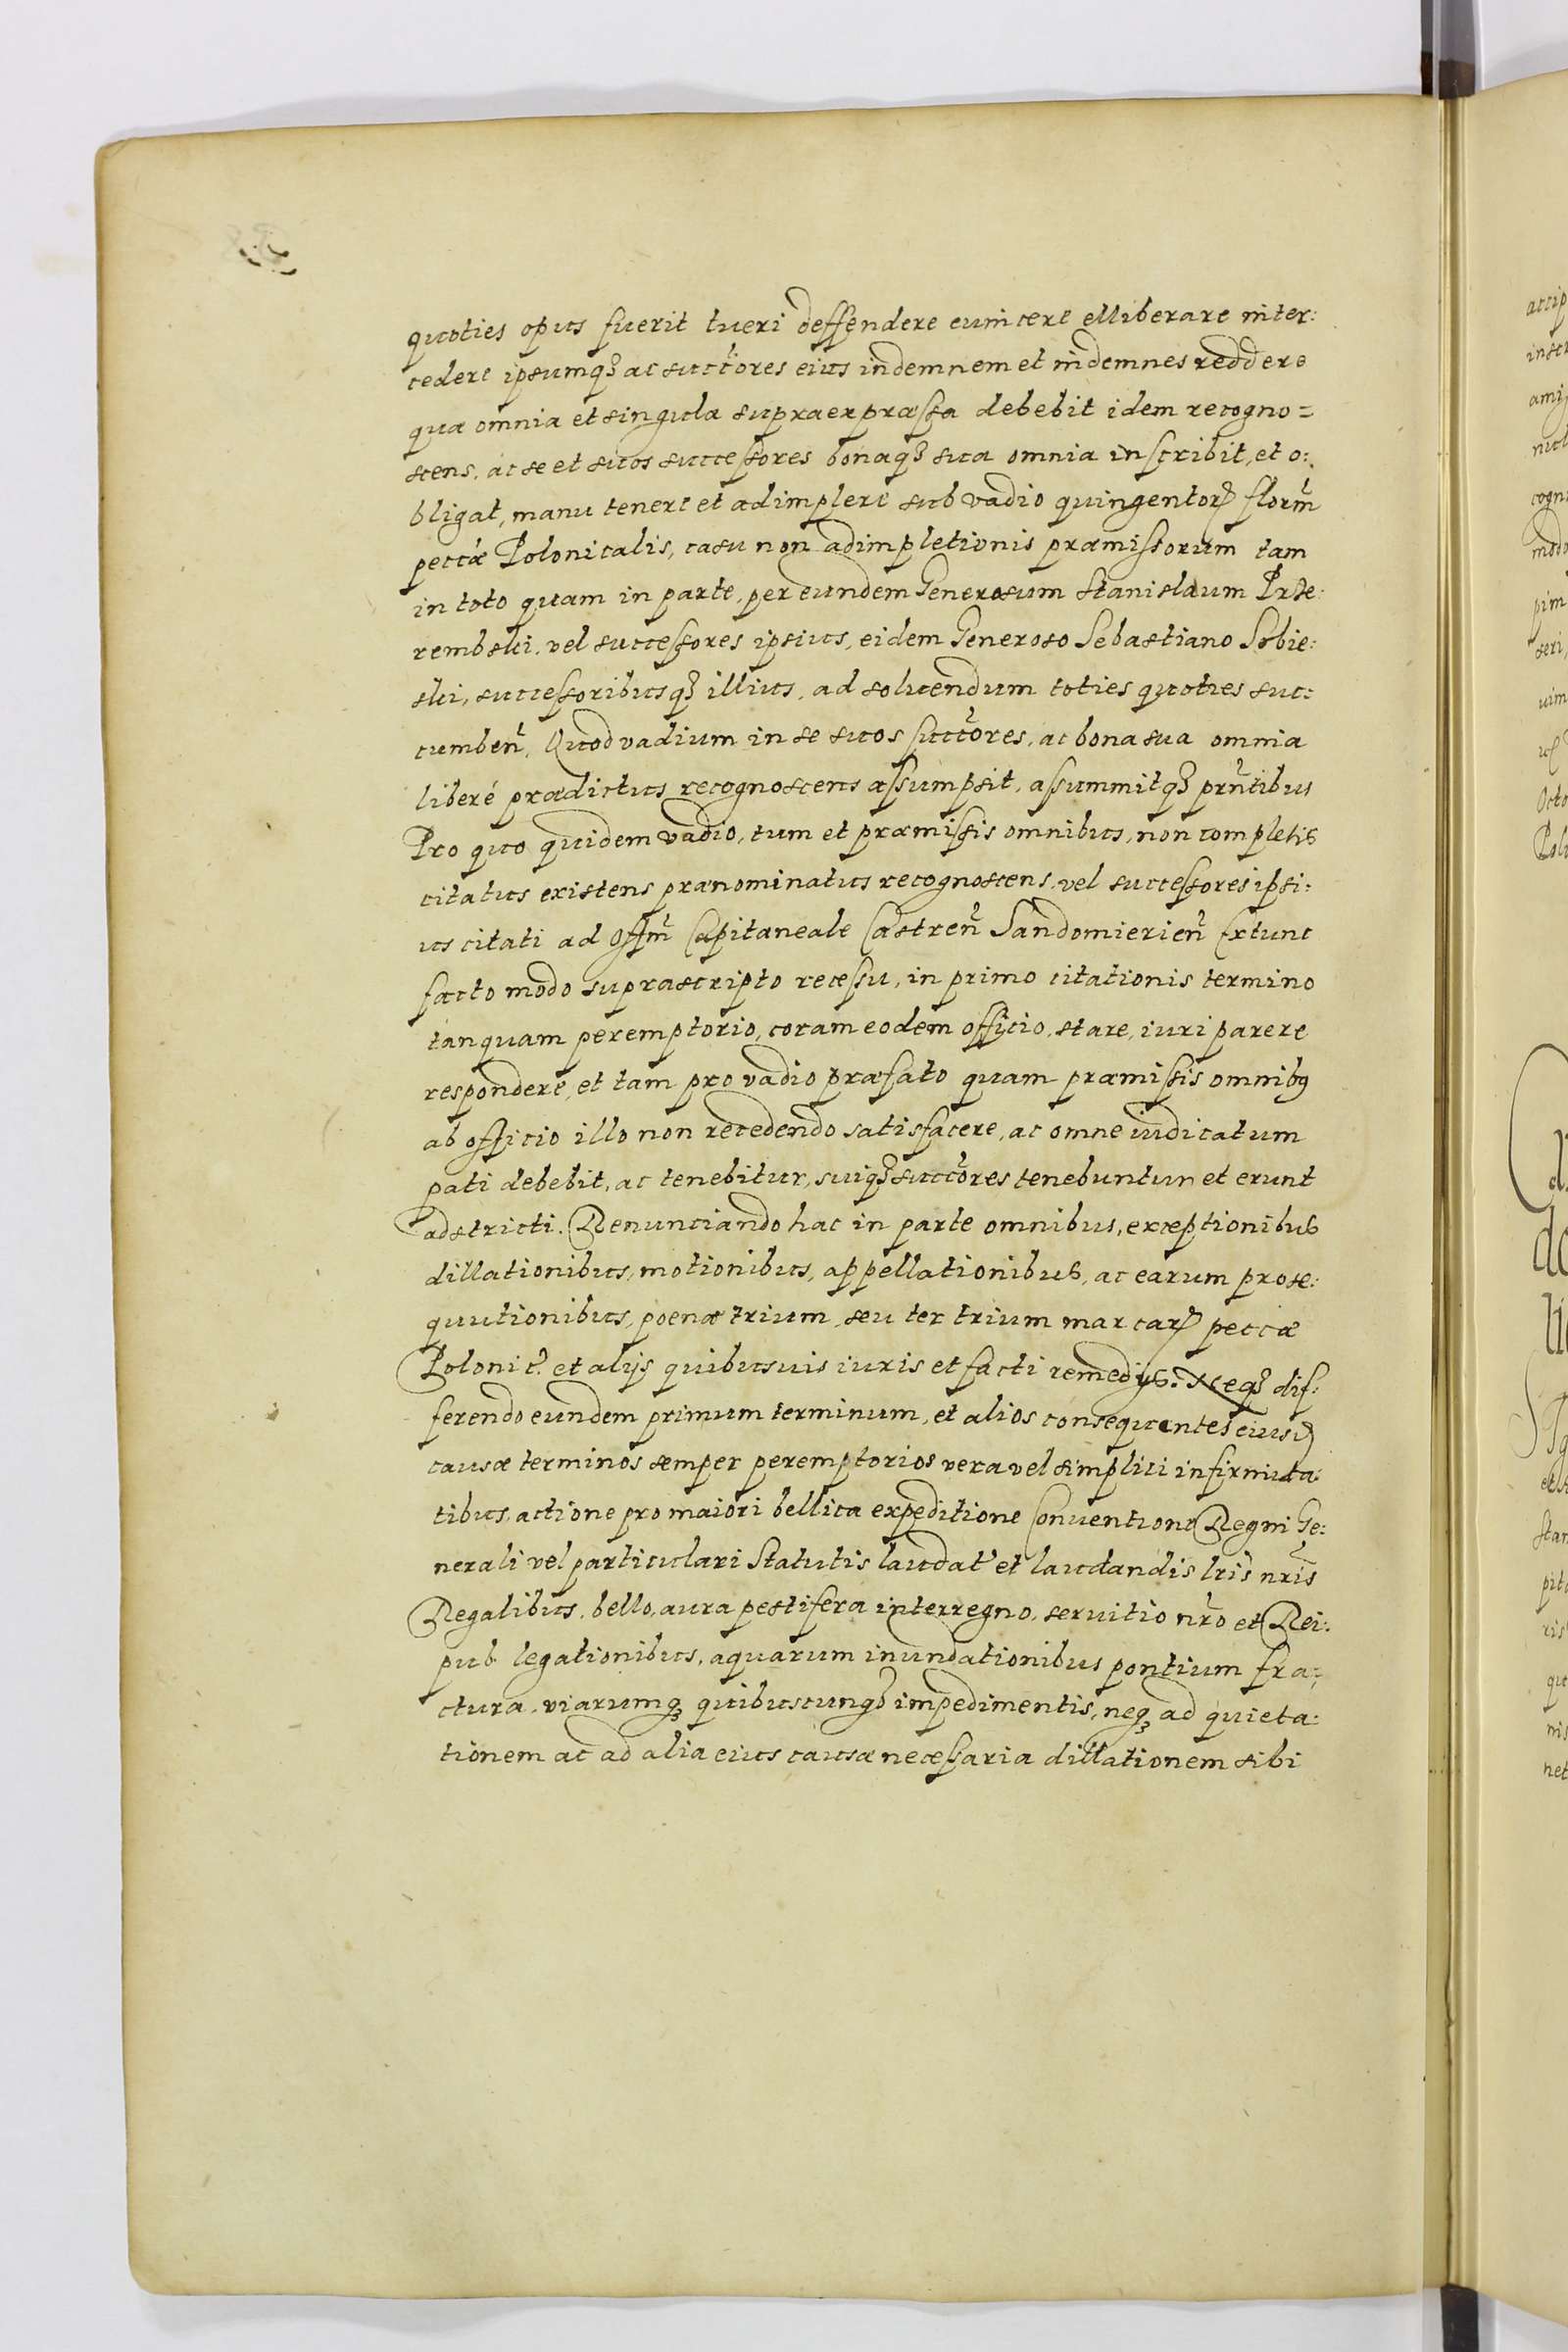 quoties opus fuerit tueri deffendere euincere elliberare inter:
cedere ipsumqꝫ ac succ̃tores eius indemnem et indemnes reddere
quæ omnia et singula supraexpræssa debebit idem recogno=
scens, ac se et suos successores bonaqꝫ sua omnia inscribit, et o:
bligat, manu tenere et adimplere sub vadio quingentorꝝ florm̃
peccæ Polonicalis, casu non adimpletionis præmissorum tam
in toto quam in parte, per eundem Generosum Stanislaum Prze:
rembski, vel successores ipsius, eidem Generoso Sebastiano Sobie:
ski, successoribusqꝫ illius, ad soluendum toties quoties suc:
cumben̄, Quod vadium in se suos succ̃tores, ac bona sua omnia
liberé prædictus recognoscens assumpsit, assummitqꝫ prñtibus
Pro quo quidem vadio, tum et præmissis omnibus, non completis
citatus existens prænominatus recognoscens, vel successores ipsi:
us citati ad Offm̃ Capitaneale Castren̄ Sandomierien̄ Extunc
facto modo suprascripto recessu, in primo citationis termino
tanquam peremptorio, coram eodem officio, stare, iuri parere
respondere, et tam pro vadio præfato quam præmissis omnibꝰ
ab officio illo non recedendo satisfacere, ac omne iudicatum
pati debebit, ac tenebitur, suiqꝫ succ̃tores tenebuntur et erunt
adstricti. Renunciando hac in parte omnibus, exceptionibus
dillationibus, motionibus, appellationibus, ac earum prose:
quutionibus, poenæ trium, seu ter trium marcarꝝ peccæ
Polonic̃. et alijs quibusuis iuris et facti remedijs. Neqꝫ dif:
ferendo eundem primum terminum, et alios consequentes eiusđ
causæ terminos semper peremptorios vera vel simplici infirmita:
tibus, actione pro maiori bellica expeditione Conuentione Regni Ge:
nerali vel particulari Statutis laudat̃ et laudandis lr̃is nr̃is
Regalibus, bello, aura pestifera interregno, seruitio nr̃o et Rei:
pub. legationibus, aquarum inundationibus pontium fra:
ctura, viarumqꝫ quibuscunqꝫ impedimentis, neqꝫ ad quieta:
tionem ac ad alia eius causæ necessaria dillationem sibi